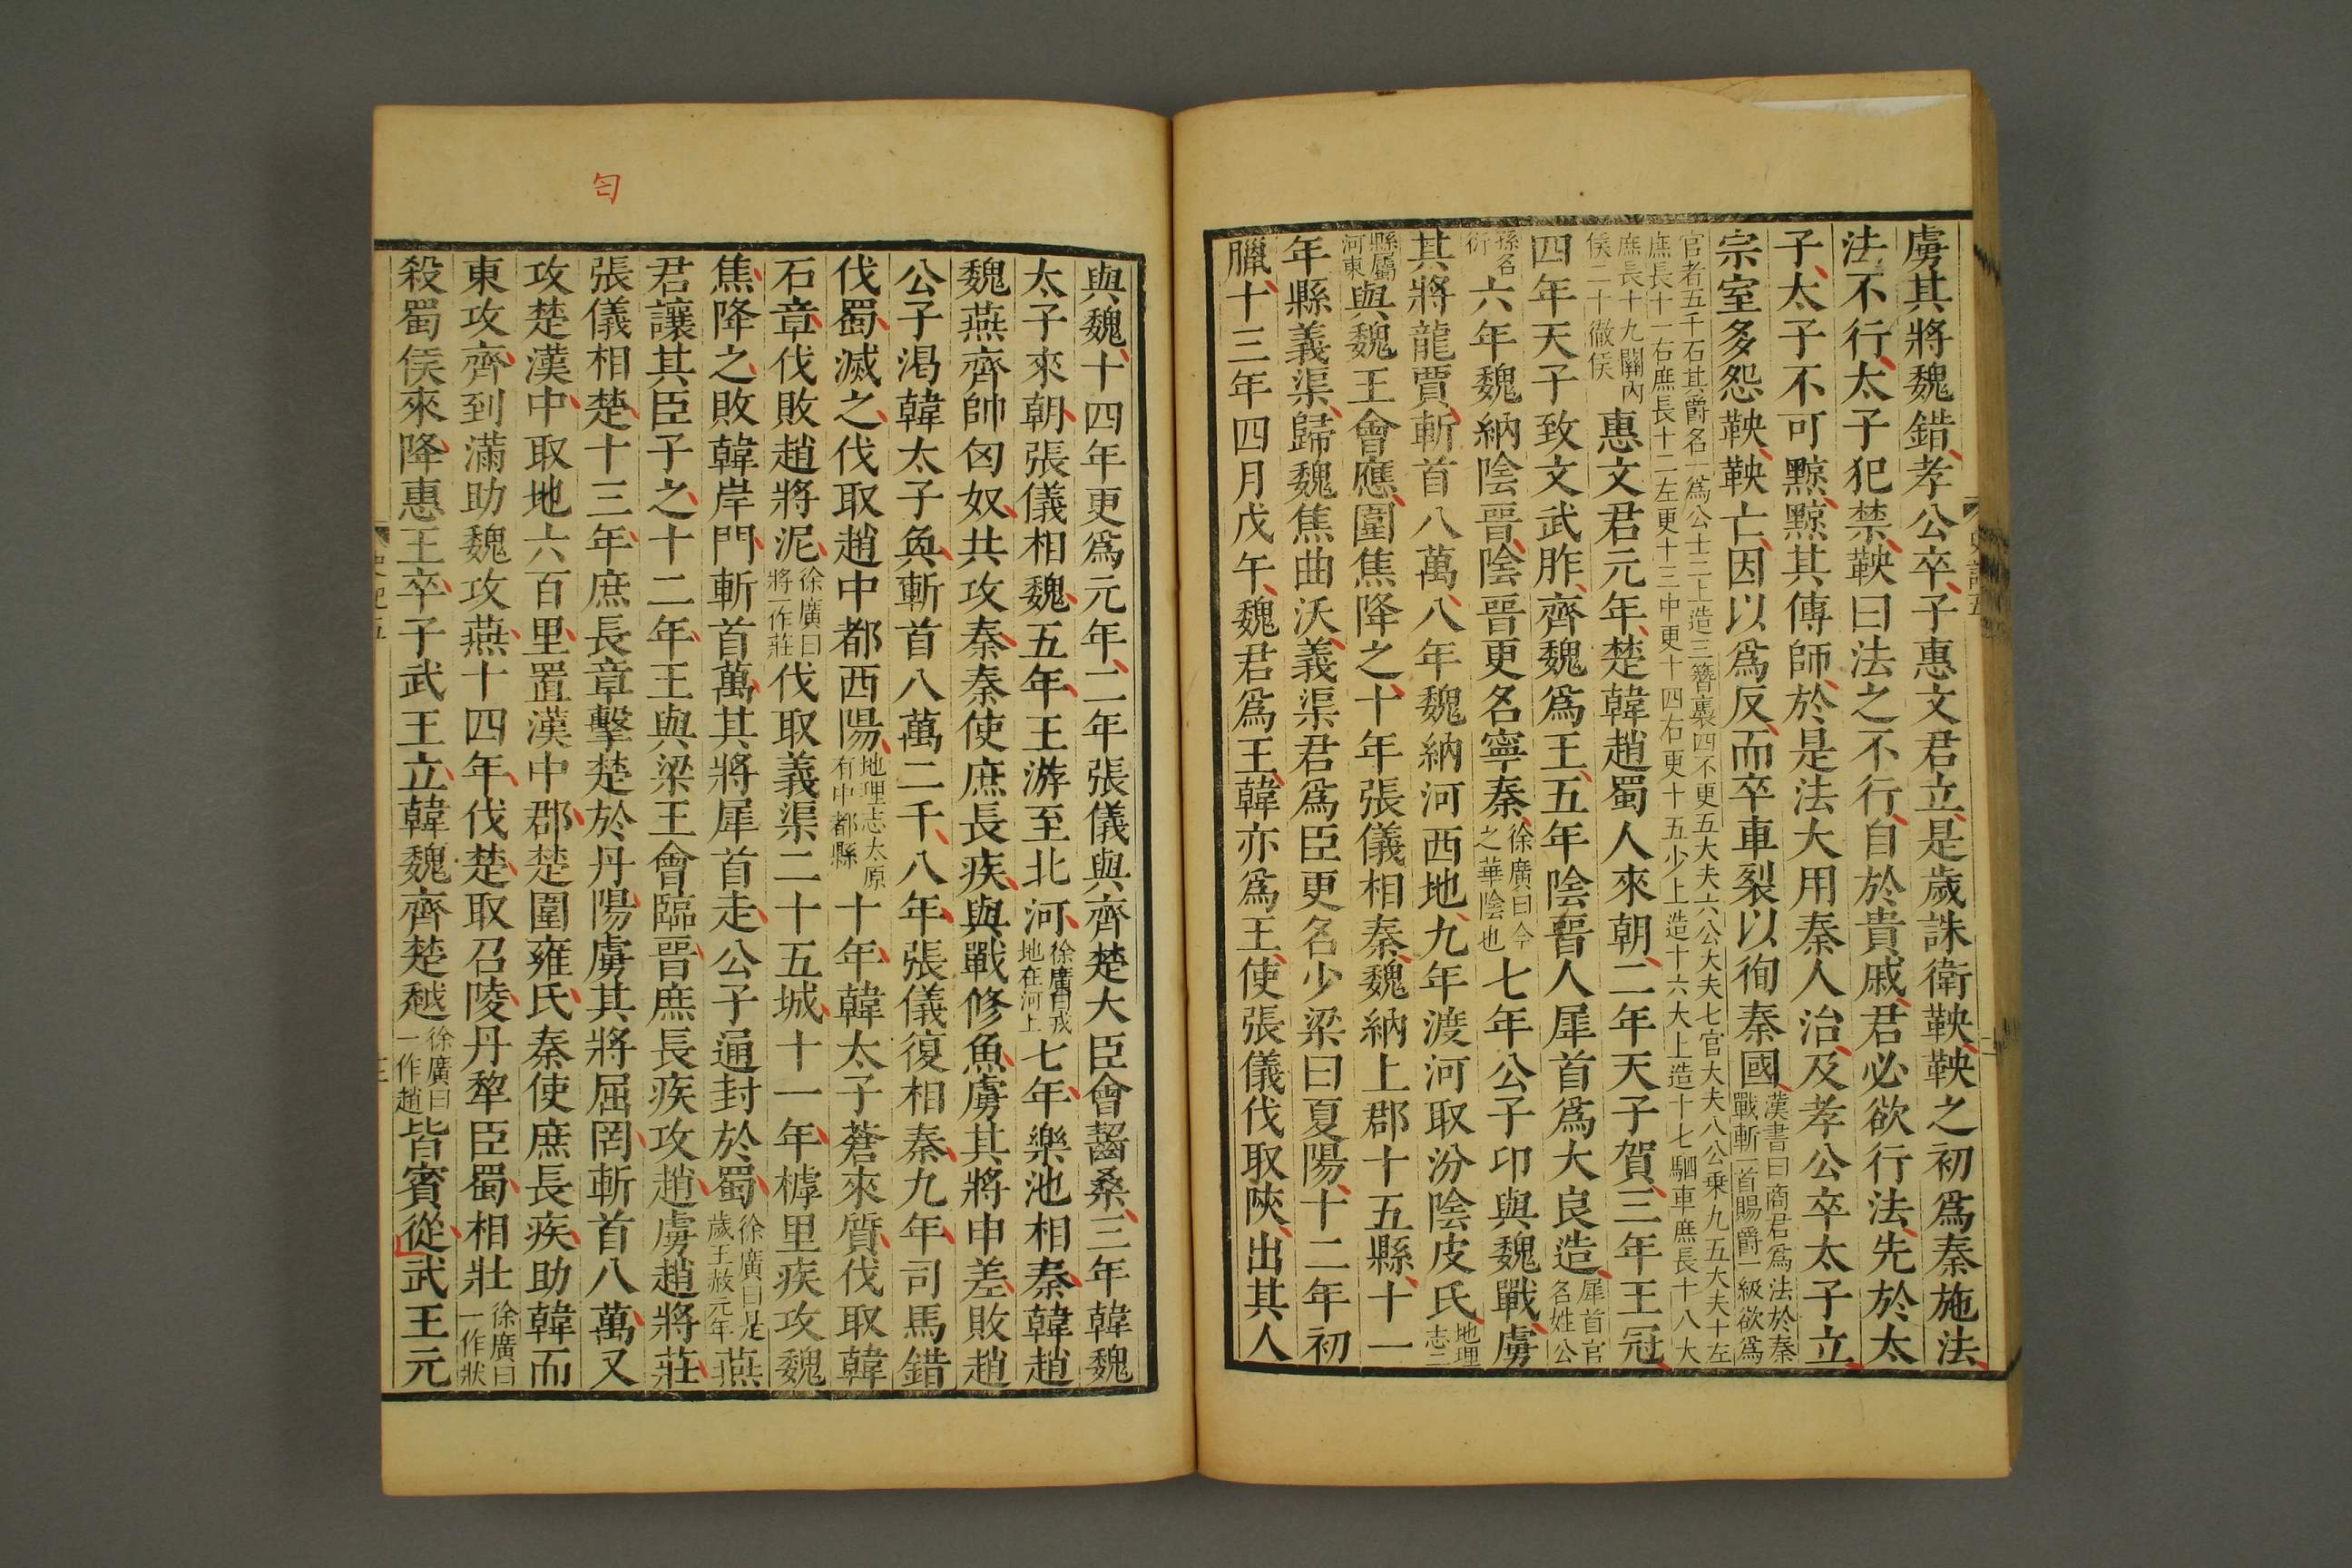 虜其將魏錯孝公卒子惠文君立是歲誅衛鞅鞅之初爲秦施法
法不行太子犯禁鞅曰法之不行自於貴戚君必欲行法先於太
子太子不可黥黥其傅師於是法大用秦人治及孝公卒太子立
宗室多怨鞅鞅亡因以爲反而卒車裂以徇秦國漢書曰商君爲法於秦戰斬一首賜爵一級欲爲
官者五千石其爵名一爲公士二上造三簪褭四不更五大夫六公大夫七官大夫八公乗九五大夫十左
庶長十一右庶長十二左更十三中更十四右更十五少上造十六大上造十七駟車庶長十八大
庶長十九關內侯二十徹侯惠文君元年楚韓趙蜀人來朝二年天子賀三年王冠
四年天子致文武胙齊魏爲王五年陰晉人犀首爲大良造犀首官名姓公
孫名衍六年魏納陰晉陰晉更名寧秦徐廣曰今之華陰也七年公子卬與魏戰虜
其將龍賈斬首八萬八年魏納河西地九年渡河取汾陰皮氏地理志二
縣屬河東與魏王會應圍焦降之十年張儀相秦魏納上郡十五縣十一
年縣義渠歸魏焦曲沃義渠君爲臣更名少梁曰夏陽十二年初
臘十三年四月戊午魏君爲王韓亦爲王使張儀伐取陝出其人
與魏十四年更爲元年二年張儀與齊楚大臣會齧桑三年韓魏
太子來朝張儀相魏五年王游至北河徐廣曰戎地在河上七年樂池相秦韓趙
魏燕齊帥匈奴共攻秦秦使庶長疾與戰修魚虜其將申差敗趙
公子渴韓太子奐斬首八萬二千八年張儀復相秦九年司馬錯
伐蜀滅之伐取趙中都西陽地理志太原有中都縣十年韓太子蒼來質伐取韓
石章伐敗趙將泥徐廣曰將一作莊伐取義渠二十五城十一年樗里疾攻魏
焦降之敗韓岸門斬首萬其將犀首走公子通封於蜀徐廣曰是歲王赧元年燕
君讓其臣子之十二年王與梁王會臨晉庶長疾攻趙虜趙將莊
張儀相楚十三年庶長章擊楚於丹陽虜其將屈匄斬首八萬又
攻楚漢中取地六百里置漢中郡楚圍雍氏秦使庶長疾助韓而
東攻齊到滿助魏攻燕十四年伐楚取召陵丹犂臣蜀相壯徐廣曰一作狀
殺蜀侯來降惠王卒子武王立韓魏齊楚越徐廣曰一作趙皆賓從武王元
匄
史記五
二
史記五
三